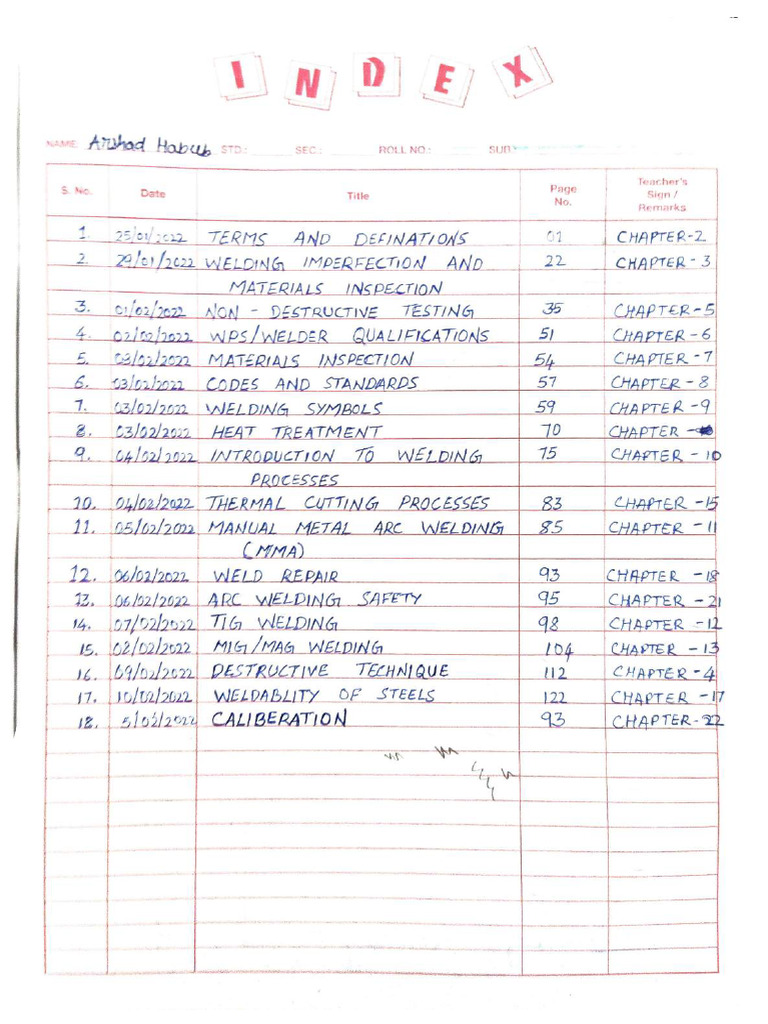 INDEX
NAME: Arshad Habib STD.: SEC.: ROLL NO.: SUB
S. No. Date Title Page No. Teacher's Sign / Remarks
1. 25/01/2022 TERMS AND DEFINATIONS 01 CHAPTER-2
2. 29/01/2022 WELDING IMPERFECTION AND 22 CHAPTER - 3
MATERIALS INSPECTION
3. 01/02/2022 NON - DESTRUCTIVE TESTING 35 CHAPTER-5
4. 02/02/2022 WPS/WELDER QUALIFICATIONS 51 CHAPTER - 6
5. 03/02/2022 MATERIALS INSPECTION 54 CHAPTER - 7
6. 03/02/2022 CODES AND STANDARDS 57 CHAPTER - 8
7. 03/02/2022 WELDING SYMBOLS 59 CHAPTER - 9
8. 03/02/2022 HEAT TREATMENT 70 CHAPTER -
9. 04/02/2022 INTRODUCTION TO WELDING 75 CHAPTER - 10
PROCESSES
10. 04/02/2022 THERMAL CUTTING PROCESSES 83 CHAPTER -15
11. 05/02/2022 MANUAL METAL ARC WELDING 85 CHAPTER - 11
(MMA)
12. 06/02/2022 WELD REPAIR 93 CHAPTER - 18
13. 06/02/2022 ARC WELDING SAFETY 95 CHAPTER - 21
14. 07/02/2022 TIG WELDING 98 CHAPTER - 12
15. 08/02/2022 MIG/MAG WELDING 104 CHAPTER - 13
16. 09/02/2022 DESTRUCTIVE TECHNIQUE 112 CHAPTER - 4
17. 10/02/2022 WELDABLITY OF STEELS 122 CHAPTER - 17
18. CALIBERATION 93 CHAPTER-22